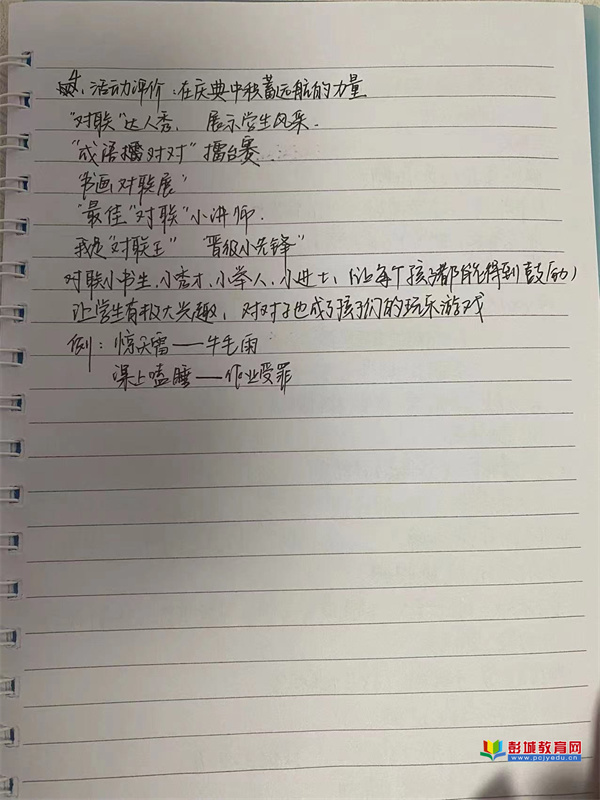 4、活动评价：在庆典中积蓄远航的力量
"对联"达人秀，展示学生风采.
"成语擂对对"擂台赛
书画对联展"
"最佳"对联"小讲师.
我是"对联王" "晋级小先锋"
对联小书生、小秀才、小举人、小进士、(让每个孩子都能得到鼓励)
让学生有极大兴趣，对对子也成了孩子们的玩乐游戏
例：惊天雷——牛毛雨
课上嗑睡——作业受罪
彭城教育网
www.pcjyedu.cn